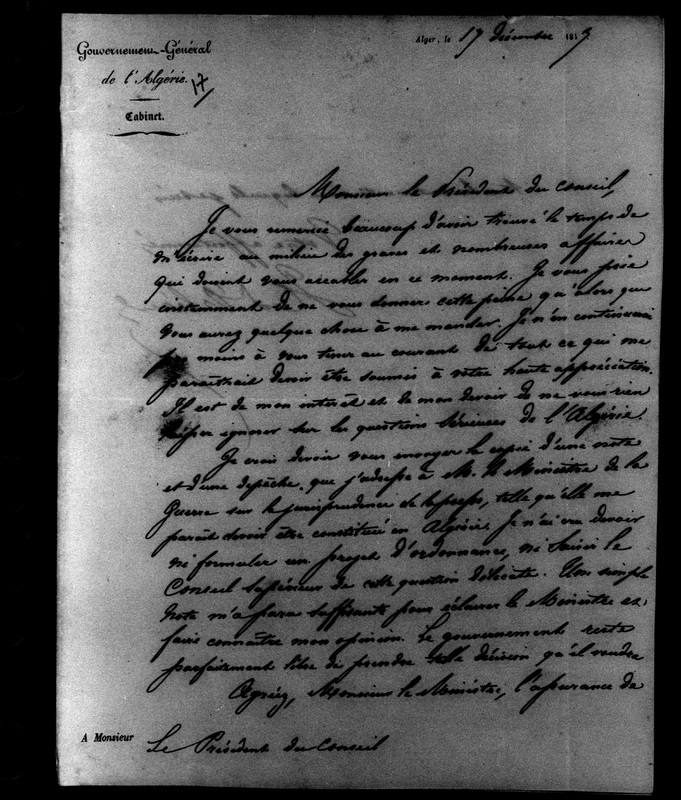 Gouvernement-Général
de l'Algérie.
17
Cabinet.
Alger, le 17 décembre 184
Monsieur le Président du Conseil,
Je vous remercie beaucoup d'avoir trouvé le temps de
m'écrire au milieu des graves et nombreuses affaires
qui doivent vous accabler en ce moment. Je vous prie
instamment de ne vous donner cette peine qu'alors que
vous aurez quelque chose à me mander. Je n'en continuerai
pas moins à vous tenir au courant de tout ce qui me
paraîtrait devoir être soumis à votre haute appréciation.
Il est de mon intérêt et de mon devoir de ne vous rien
laisser ignorer sur les questions sérieuses de l'Algérie.
Je crois devoir vous envoyer la copie d'une note
et d'une dépêche que j'adresse à M. le Ministre de la
Guerre sur la jurisprudence de la presse, telle qu'elle me
paraît devoir être constituée en Algérie. Je n'ai cru devoir
ni formuler un projet d'ordonnance, ni saisir le
Conseil supérieur de cette question délicate. Une simple
note m'a paru suffisante pour éclairer le Ministre et
faire connaître mon opinion. Le gouvernement reste
parfaitement libre de prendre telle décision qu'il voudra
Agréez, Monsieur le Ministre, l'assurance de
A Monsieur
Le Président du Conseil